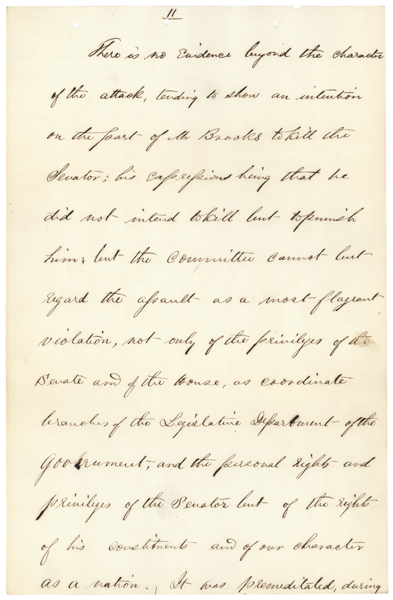 11
There is no Evidence beyond the character
of the attack, tending to show an intention
on the part of Mr Brooks to kill the
Senator; his expressions being that he
did not intend to kill but to punish
him; but the Committee cannot but
regard the assault as a most flagrant
violation, not only of the privileges of the
Senate and of the House, as coordinate
branches of the Legislative Department of the
Government; and the personal rights and
privileges of the Senator but of the rights
of his constituents and of our character
as a nation. It was premeditated, during